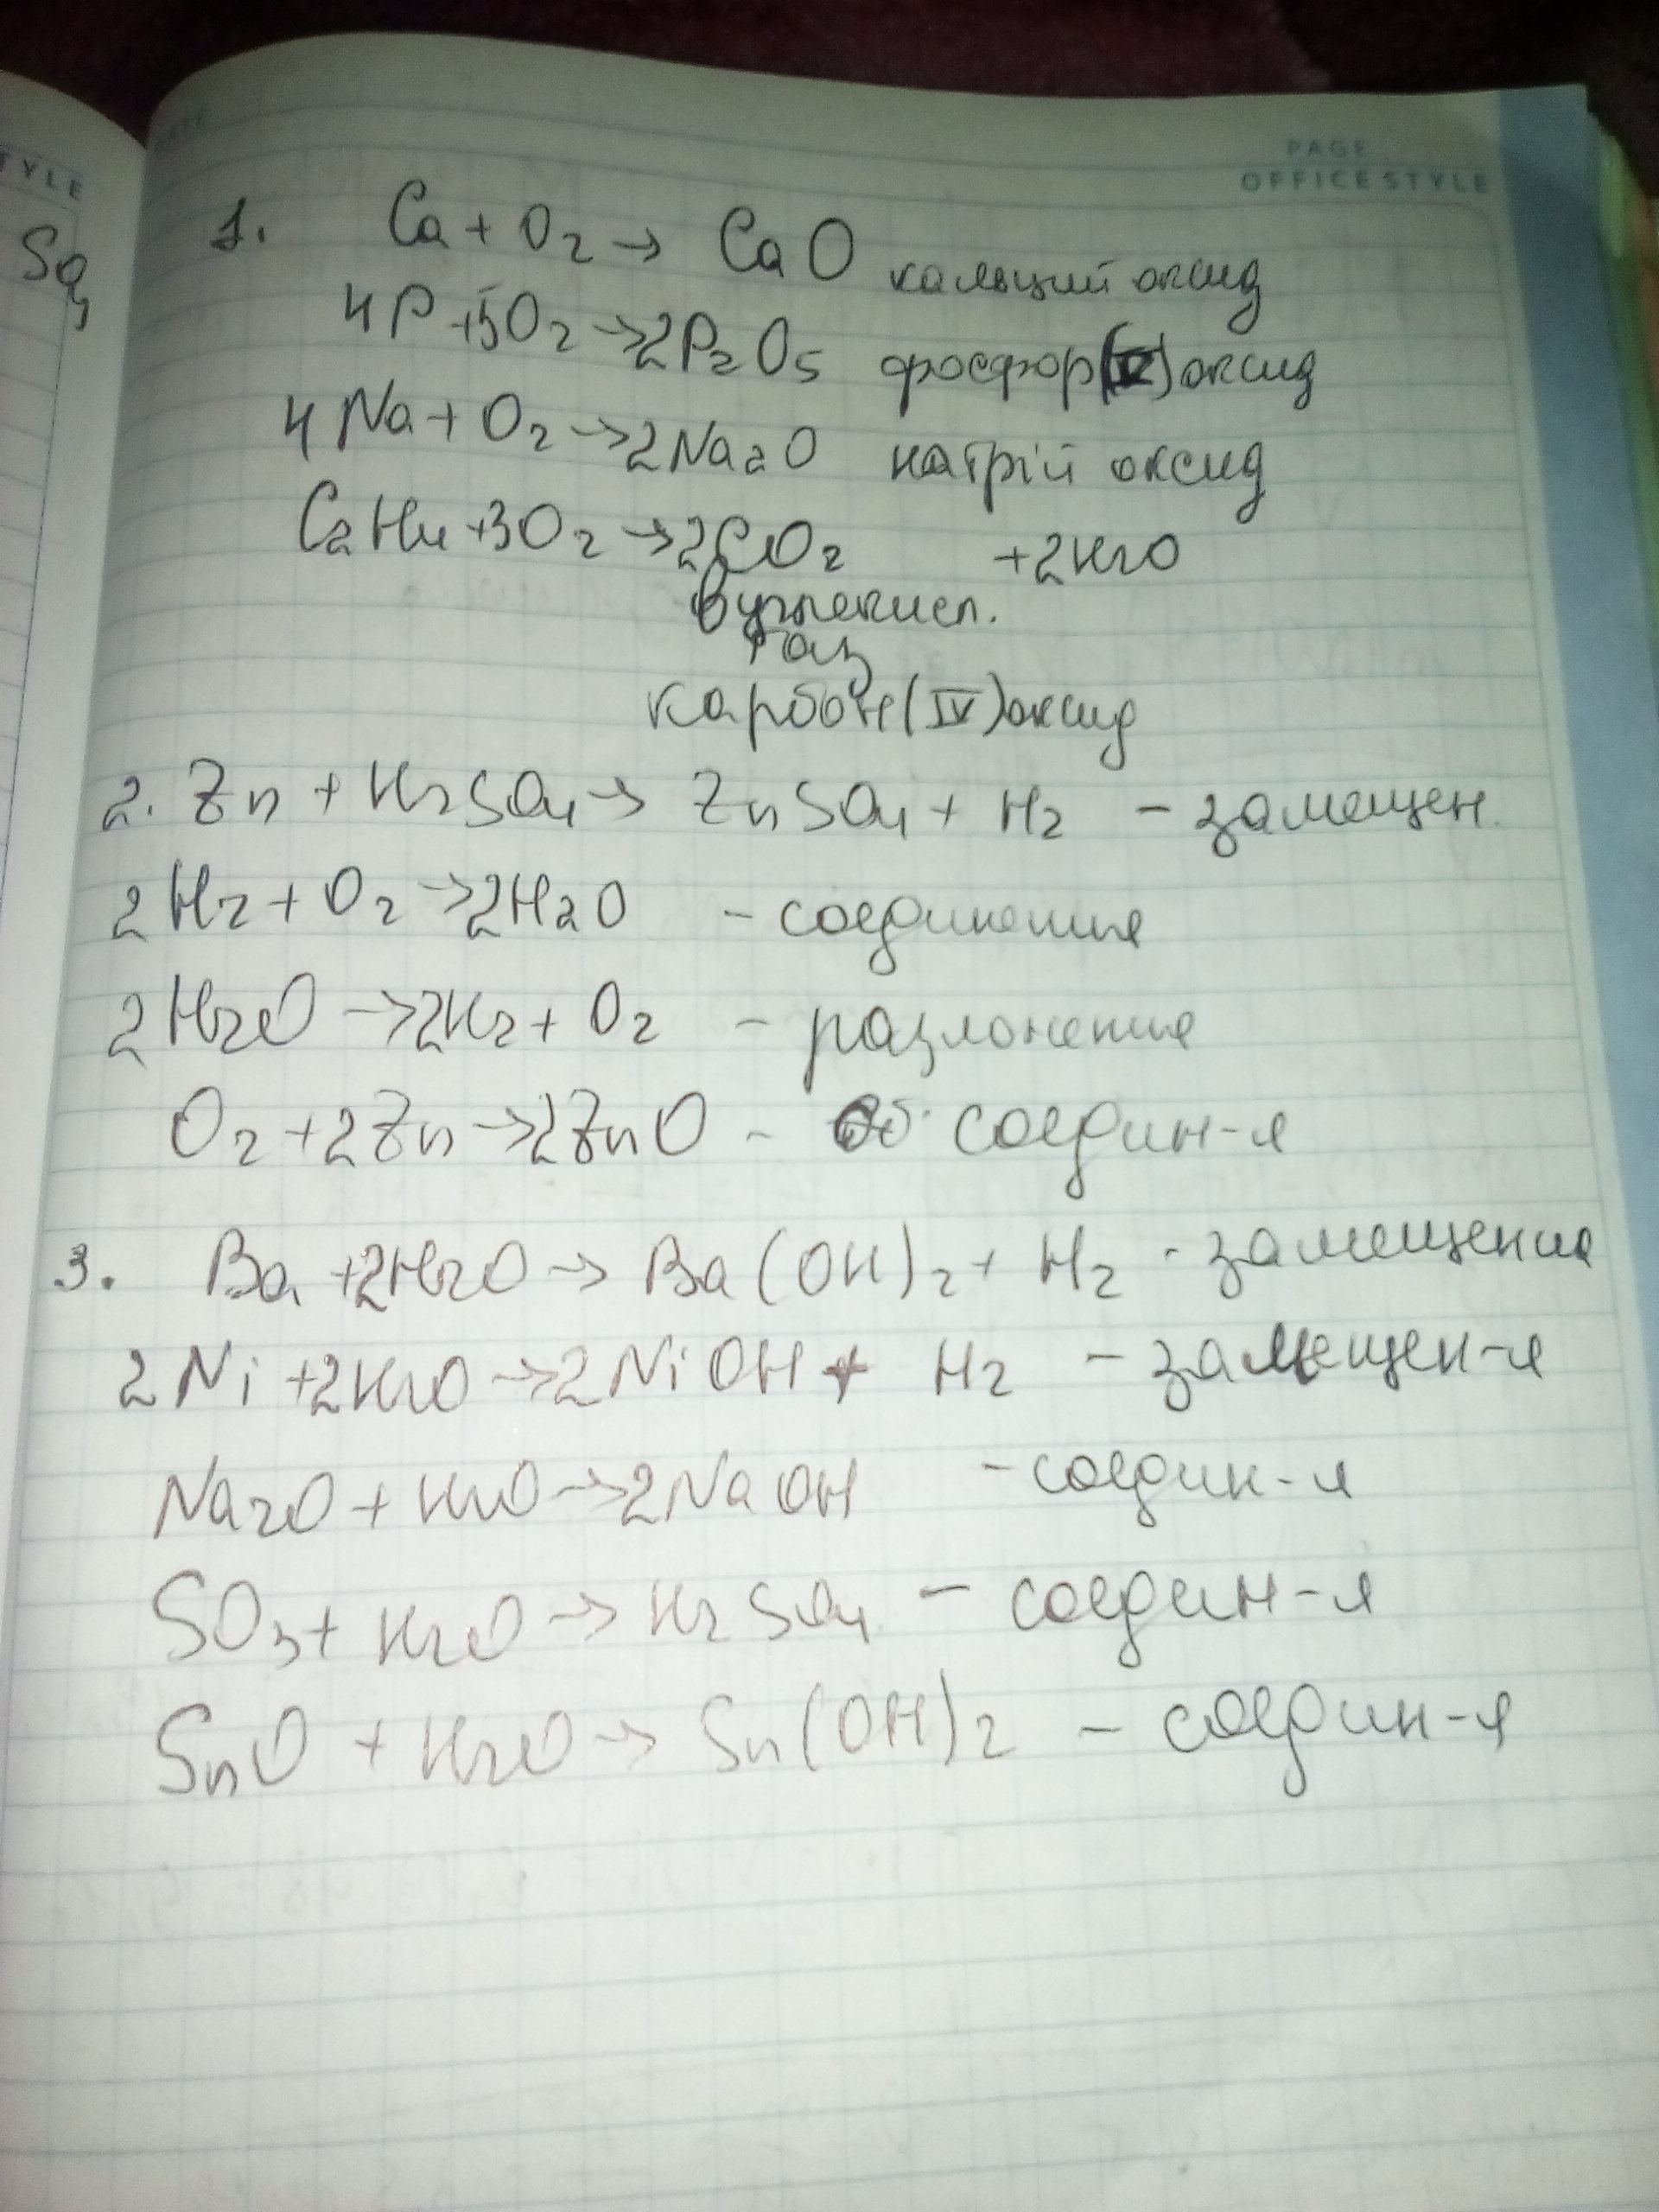 TYLE
PAGE
OFFICE STYLE
SO₄
1. Ca + O₂ → CaO кальций оксид
4P + 5O₂ → 2P₂O₅ фосфор(V)оксид
4Na + O₂ → 2Na₂O натрій оксид
C₂H₄ + 3O₂ → 2CO₂ + 2H₂O
вуглекисл.
газ
карбон(IV)оксид
2. Zn + H₂SO₄ → ZnSO₄ + H₂ - замещен.
2H₂ + O₂ → 2H₂O - соединения
2H₂O → 2H₂ + O₂ - разложения
O₂ + 2Zn → 2ZnO - соедин-я
3. Ba + 2H₂O → Ba(OH)₂ + H₂ - замещения
2Ni + 2H₂O → 2NiOH + H₂ - замещен-я
Na₂O + H₂O → 2NaOH - соедин-я
SO₃ + H₂O → H₂SO₄ - соедин-я
SnO + H₂O → Sn(OH)₂ - соедин-я